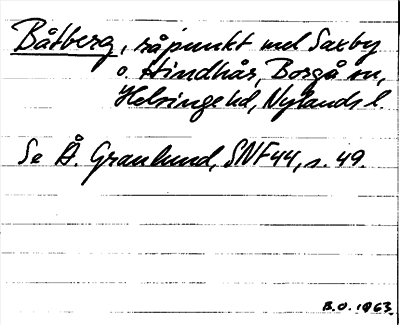 Båtberg, råpunkt med Saxby
o. Hindhår, Borgå sn,
Helsinge hd, Nylands l.
Se Å. Granlund, SNF 44, s. 49.
B.O. 1963.